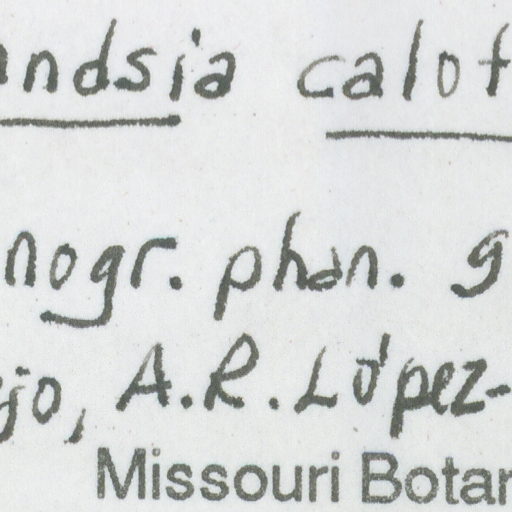 andsia calot
nogr. phan. 9
jo, A.R. López-
Missouri Botan